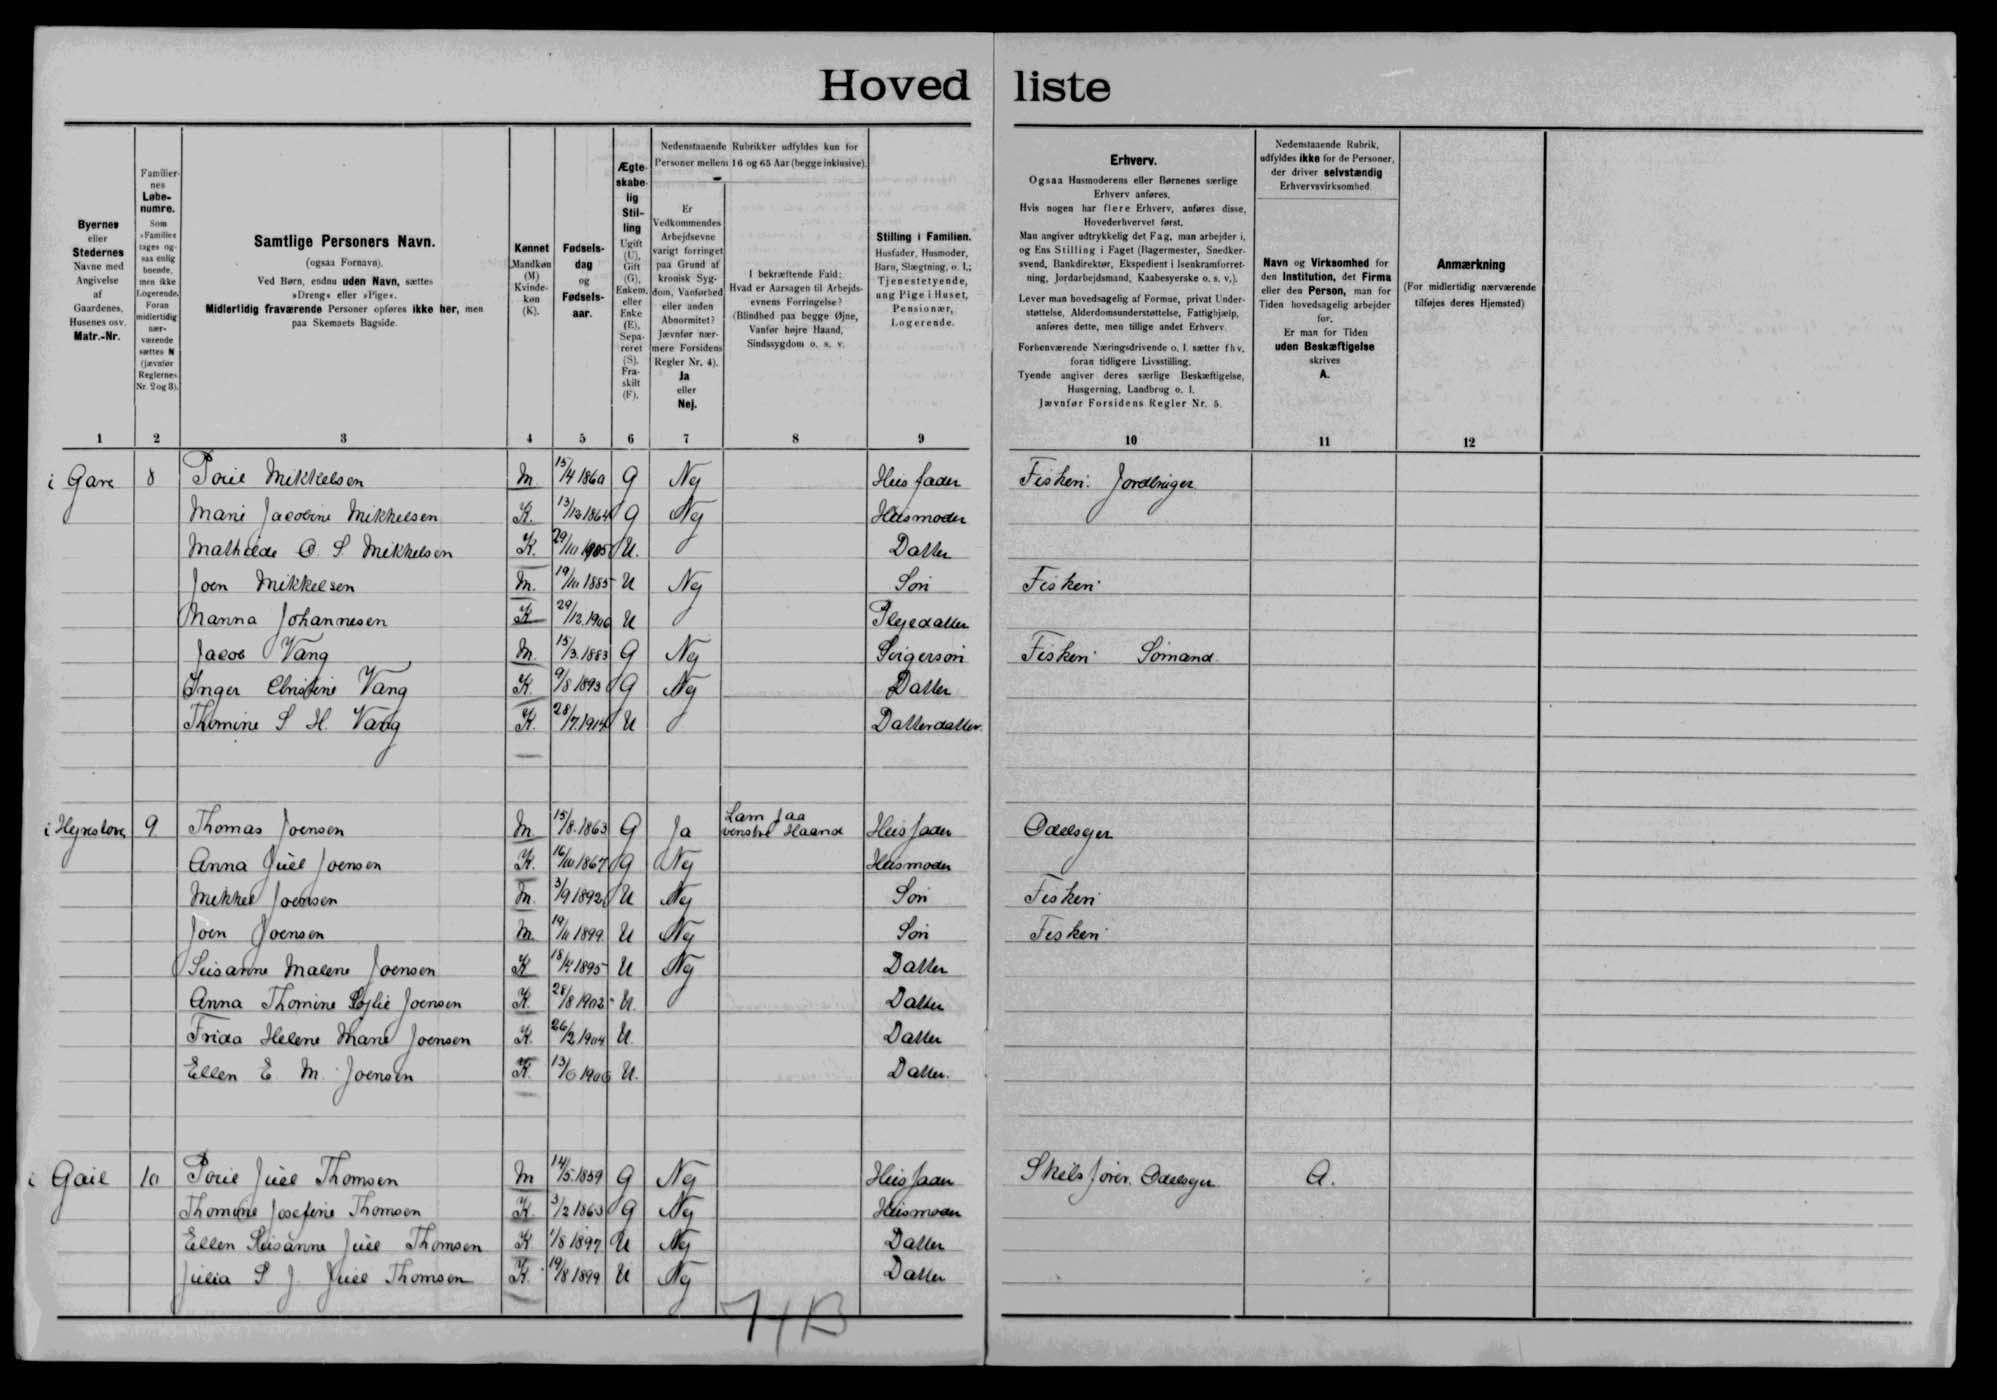 Hovedliste
Byernes
eller
Stedernes
Navne med
Angivelse
af
Gaardenes,
Husenes osv.
Matr.-Nr.
Familier-
nes
Løbe-
numre.
Som
»Familie«
tages og-
saa enlig
boende,
men ikke
Logerende.
Foran
midlertidig
nær-
værende
sættes N
(jævnfør
Reglernes
Nr. 2 og 3).
Samtlige Personers Navn.
(ogsaa Fornavn).
Ved Børn, endnu uden Navn, sættes
»Dreng« eller »Pige«.
Midlertidig fraværende Personer opføres ikke her, men
paa Skemaets Bagside.
Kønnet
Mandkøn
(M)
Kvinde-
køn
(K).
Fødsels-
dag
og
Fødsels-
aar.
Ægte-
skabe-
lig
Stil-
ling
Ugift
(U),
Gift
(G),
Enkem.
eller
Enke
(E),
Sepa-
reret
(S).
Fra-
skilt
(F).
Nedenstaaende Rubrikker udfyldes kun for
Personer mellem 16 og 65 Aar (begge inklusive).
Er
Vedkommendes
Arbejdsevne
varigt forringet
paa Grund af
kronisk Syg-
dom, Vanførhed
eller anden
Abnormitet?
Jævnfør nær-
mere Forsidens
Regler Nr. 4).
Ja
eller
Nej.
I bekræftende Fald:
Hvad er Aarsagen til Arbejds-
evnens Forringelse?
(Blindhed paa begge Øjne,
Vanfør højre Haand,
Sindssygdom o. s. v.
Stilling i Familien.
Husfader, Husmoder,
Barn, Slægtning, o. l.;
Tjenestetyende,
ung Pige i Huset,
Pensionær,
Logerende.
Erhverv.
Ogsaa Husmoderens eller Børnenes særlige
Erhverv anføres.
Hvis nogen har flere Erhverv, anføres disse,
Hovederhvervet først.
Man angiver udtrykkelig det Fag, man arbejder i,
og Ens Stilling i Faget (Bagermester, Snedker-
svend, Bankdirektør, Ekspedient i Isenkramforret-
ning, Jordarbejdsmand, Kaabesyerske o. s. v.).
Lever man hovedsagelig af Formue, privat Under-
støttelse, Alderdomsunderstøttelse, Fattighjælp,
anføres dette, men tillige andet Erhverv.
Forhenværende Næringsdrivende o. l. sætter fhv.
foran tidligere Livsstilling.
Tyende angiver deres særlige Beskæftigelse,
Husgerning, Landbrug o. l.
Jævnfør Forsidens Regler Nr. 5.
Nedenstaaende Rubrik,
udfyldes ikke for de Personer,
der driver selvstændig
Erhvervsvirksomhed.
Navn og Virksomhed for
den Institution, det Firma
eller den Person, man for
Tiden hovedsagelig arbejder
for.
Er man for Tiden
uden Beskæftigelse
skrives
A.
Anmærkning
(For midlertidig nærværende
tilføjes deres Hjemsted)
1 2 3 4 5 6 7 8 9 10 11 12
i Gare 8 Poul Mikkelsen M. 15/4 1860 G Nej Husfader Fiskeri. Jordbruger
Marie Jacobine Mikkelsen K. 13/12 1864 G Nej Husmoder
Mathilde O. S. Mikkelsen K. 29/10 1905 U. Datter
Joen Mikkelsen M. 19/10 1885 U Nej Søn Fiskeri
Manna Johannesen K 29/12.1900 U Plejedatter
Jacob Vang M. 15/3.1883 G Nej Svigersøn Fiskeri Sømand.
Inger Christine Vang K. 9/8 1893 G Nej Datter
Thomine S H. Vang K. 28/7.1914 U Datterdatter.
i 9 Thomas Joensen M 15/8.1863 G Ja Lam paa venstre Haand Husfader Odelsejer
Anna Juel Joensen K. 16/10 1867 G Nej Husmoder
Mikkel Joensen M. 3/9 1892 U Nej Søn Fiskeri
Joen Joensen M. 19/11 1899 U Nej Søn Fiskeri
Susanne Malene Joensen K 18/4 1895 U Nej Datter
Anna Thomine Sofie Joensen K. 28/8 1902 U. Datter
Frida Helene Marie Joensen K. 26/2 1904 U. Datter
Ellen E. M. Joensen K. 13/6 1906 U. Datter.
i Gail 10 Poul Juel Thomsen M 14/5.1859 G Nej Husfader Skibsfører. Odelsejer A.
Thomine Josefine Thomsen K. 3/2 1863 G Nej Husmoder
Ellen Susanne Juel Thomsen K. 1/8 1897 U Nej Datter
Julia S J. Juel Thomsen K. 19/8 1899 U Nej Datter
74B